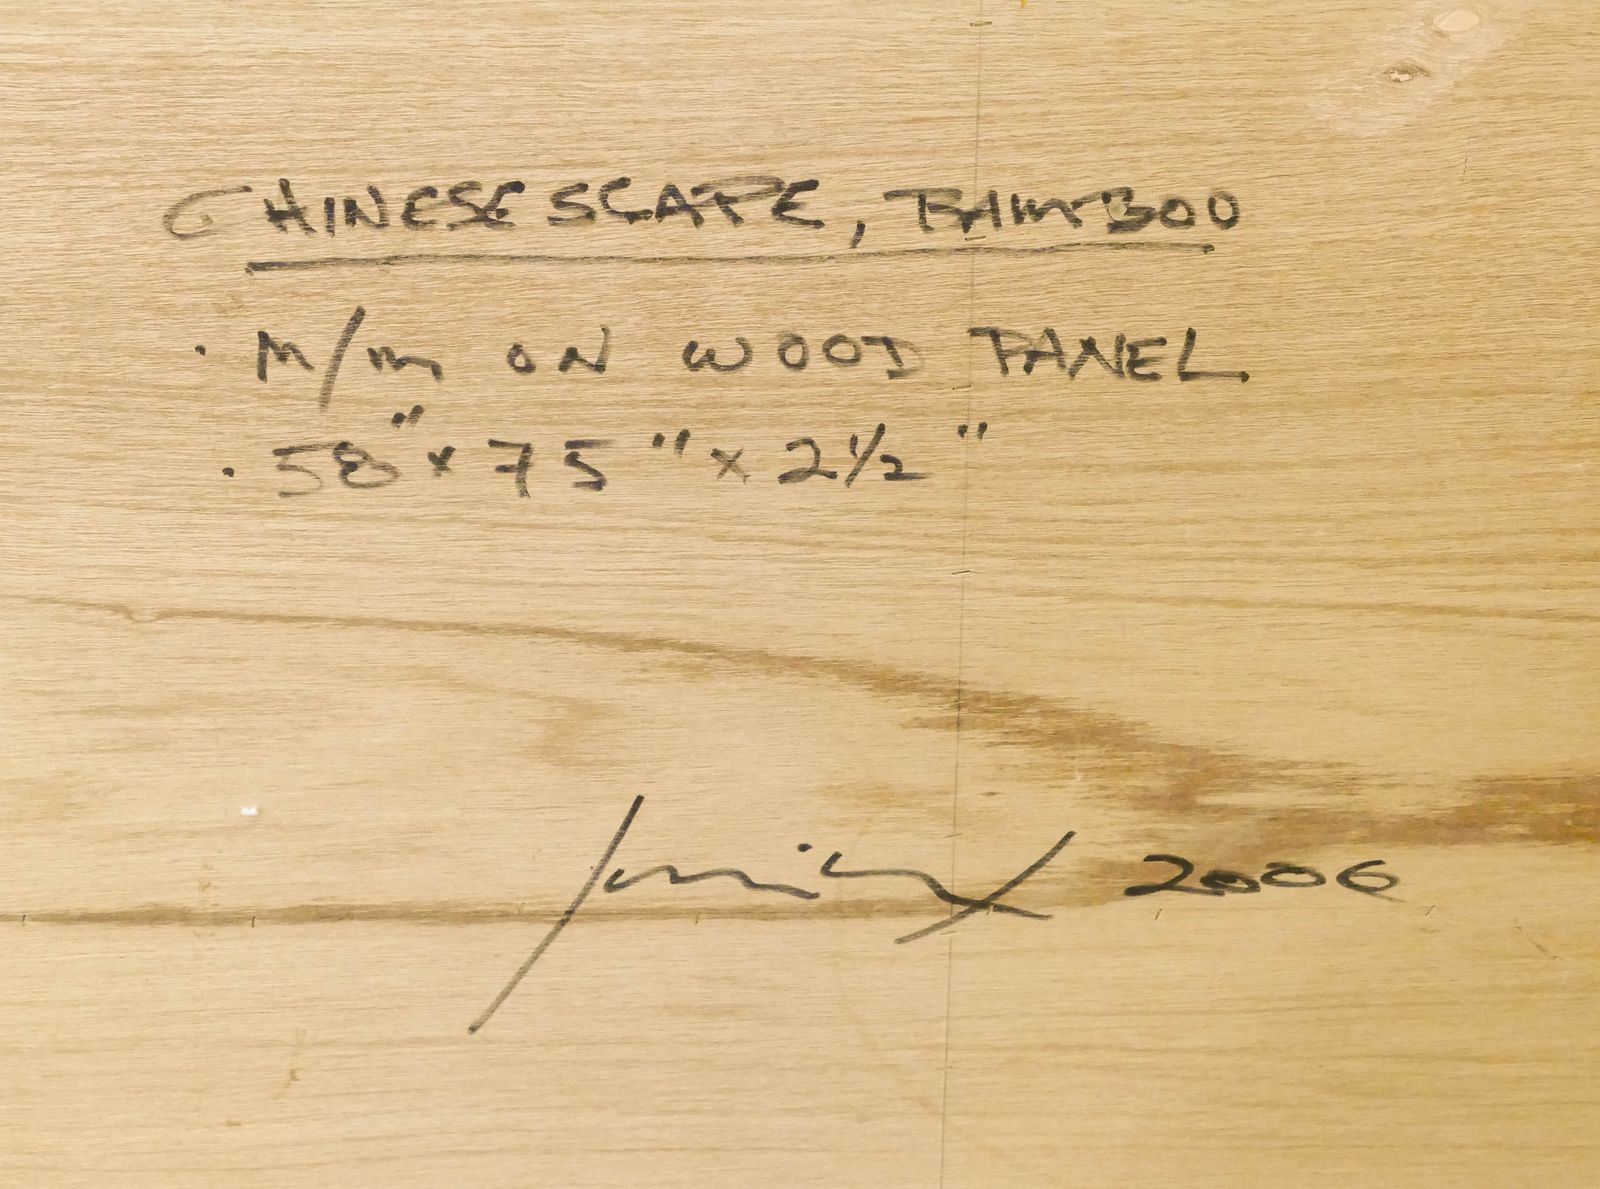 CHINESESCAPE, BAMBOO
· M/M ON WOOD PANEL
· 58" x 75" x 2 1/2"
2006